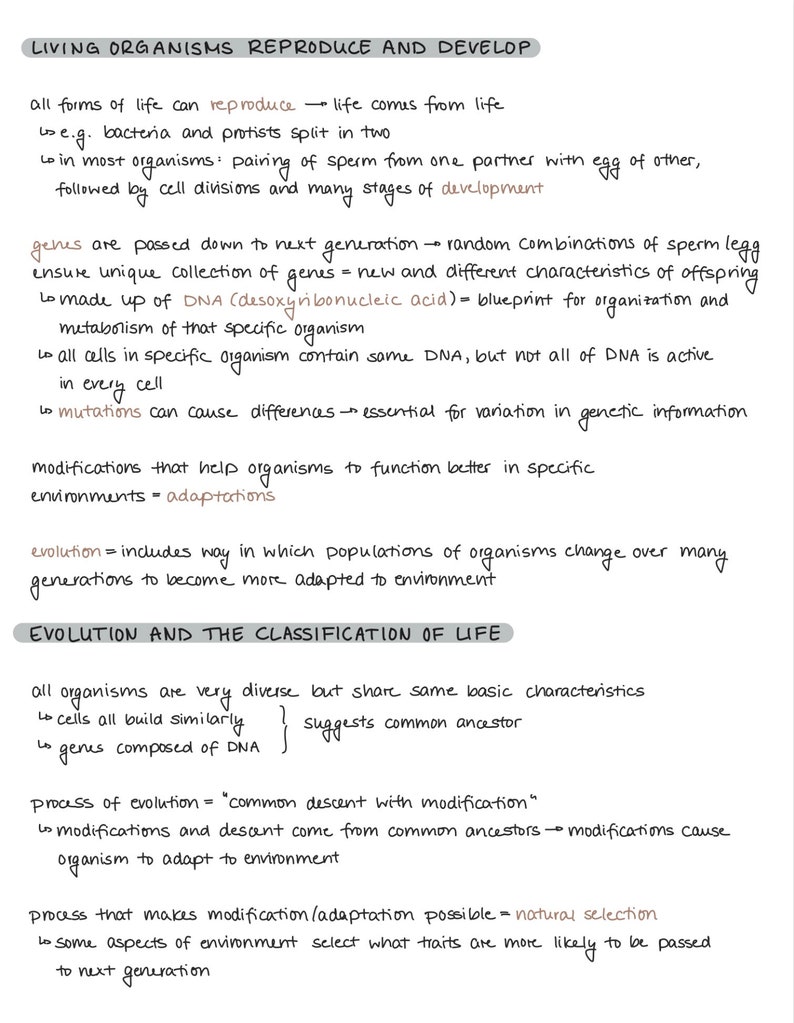 LIVING ORGANISMS REPRODUCE AND DEVELOP
all forms of life can reproduce → life comes from life
↳ e.g. bacteria and protists split in two
↳ in most organisms: pairing of sperm from one partner with egg of other,
followed by cell divisions and many stages of development
genes are passed down to next generation → random combinations of sperm/egg
ensure unique collection of genes = new and different characteristics of offspring
↳ made up of DNA (desoxyribonucleic acid) = blueprint for organization and
metabolism of that specific organism
↳ all cells in specific organism contain same DNA, but not all of DNA is active
in every cell
↳ mutations can cause differences → essential for variation in genetic information
modifications that help organisms to function better in specific
environments = adaptations
evolution = includes way in which populations of organisms change over many
generations to become more adapted to environment
EVOLUTION AND THE CLASSIFICATION OF LIFE
all organisms are very diverse but share same basic characteristics
↳ cells all build similarly } suggests common ancestor
↳ genes composed of DNA
process of evolution = "common descent with modification"
↳ modifications and descent come from common ancestors → modifications cause
organism to adapt to environment
process that makes modification/adaptation possible = natural selection
↳ some aspects of environment select what traits are more likely to be passed
to next generation